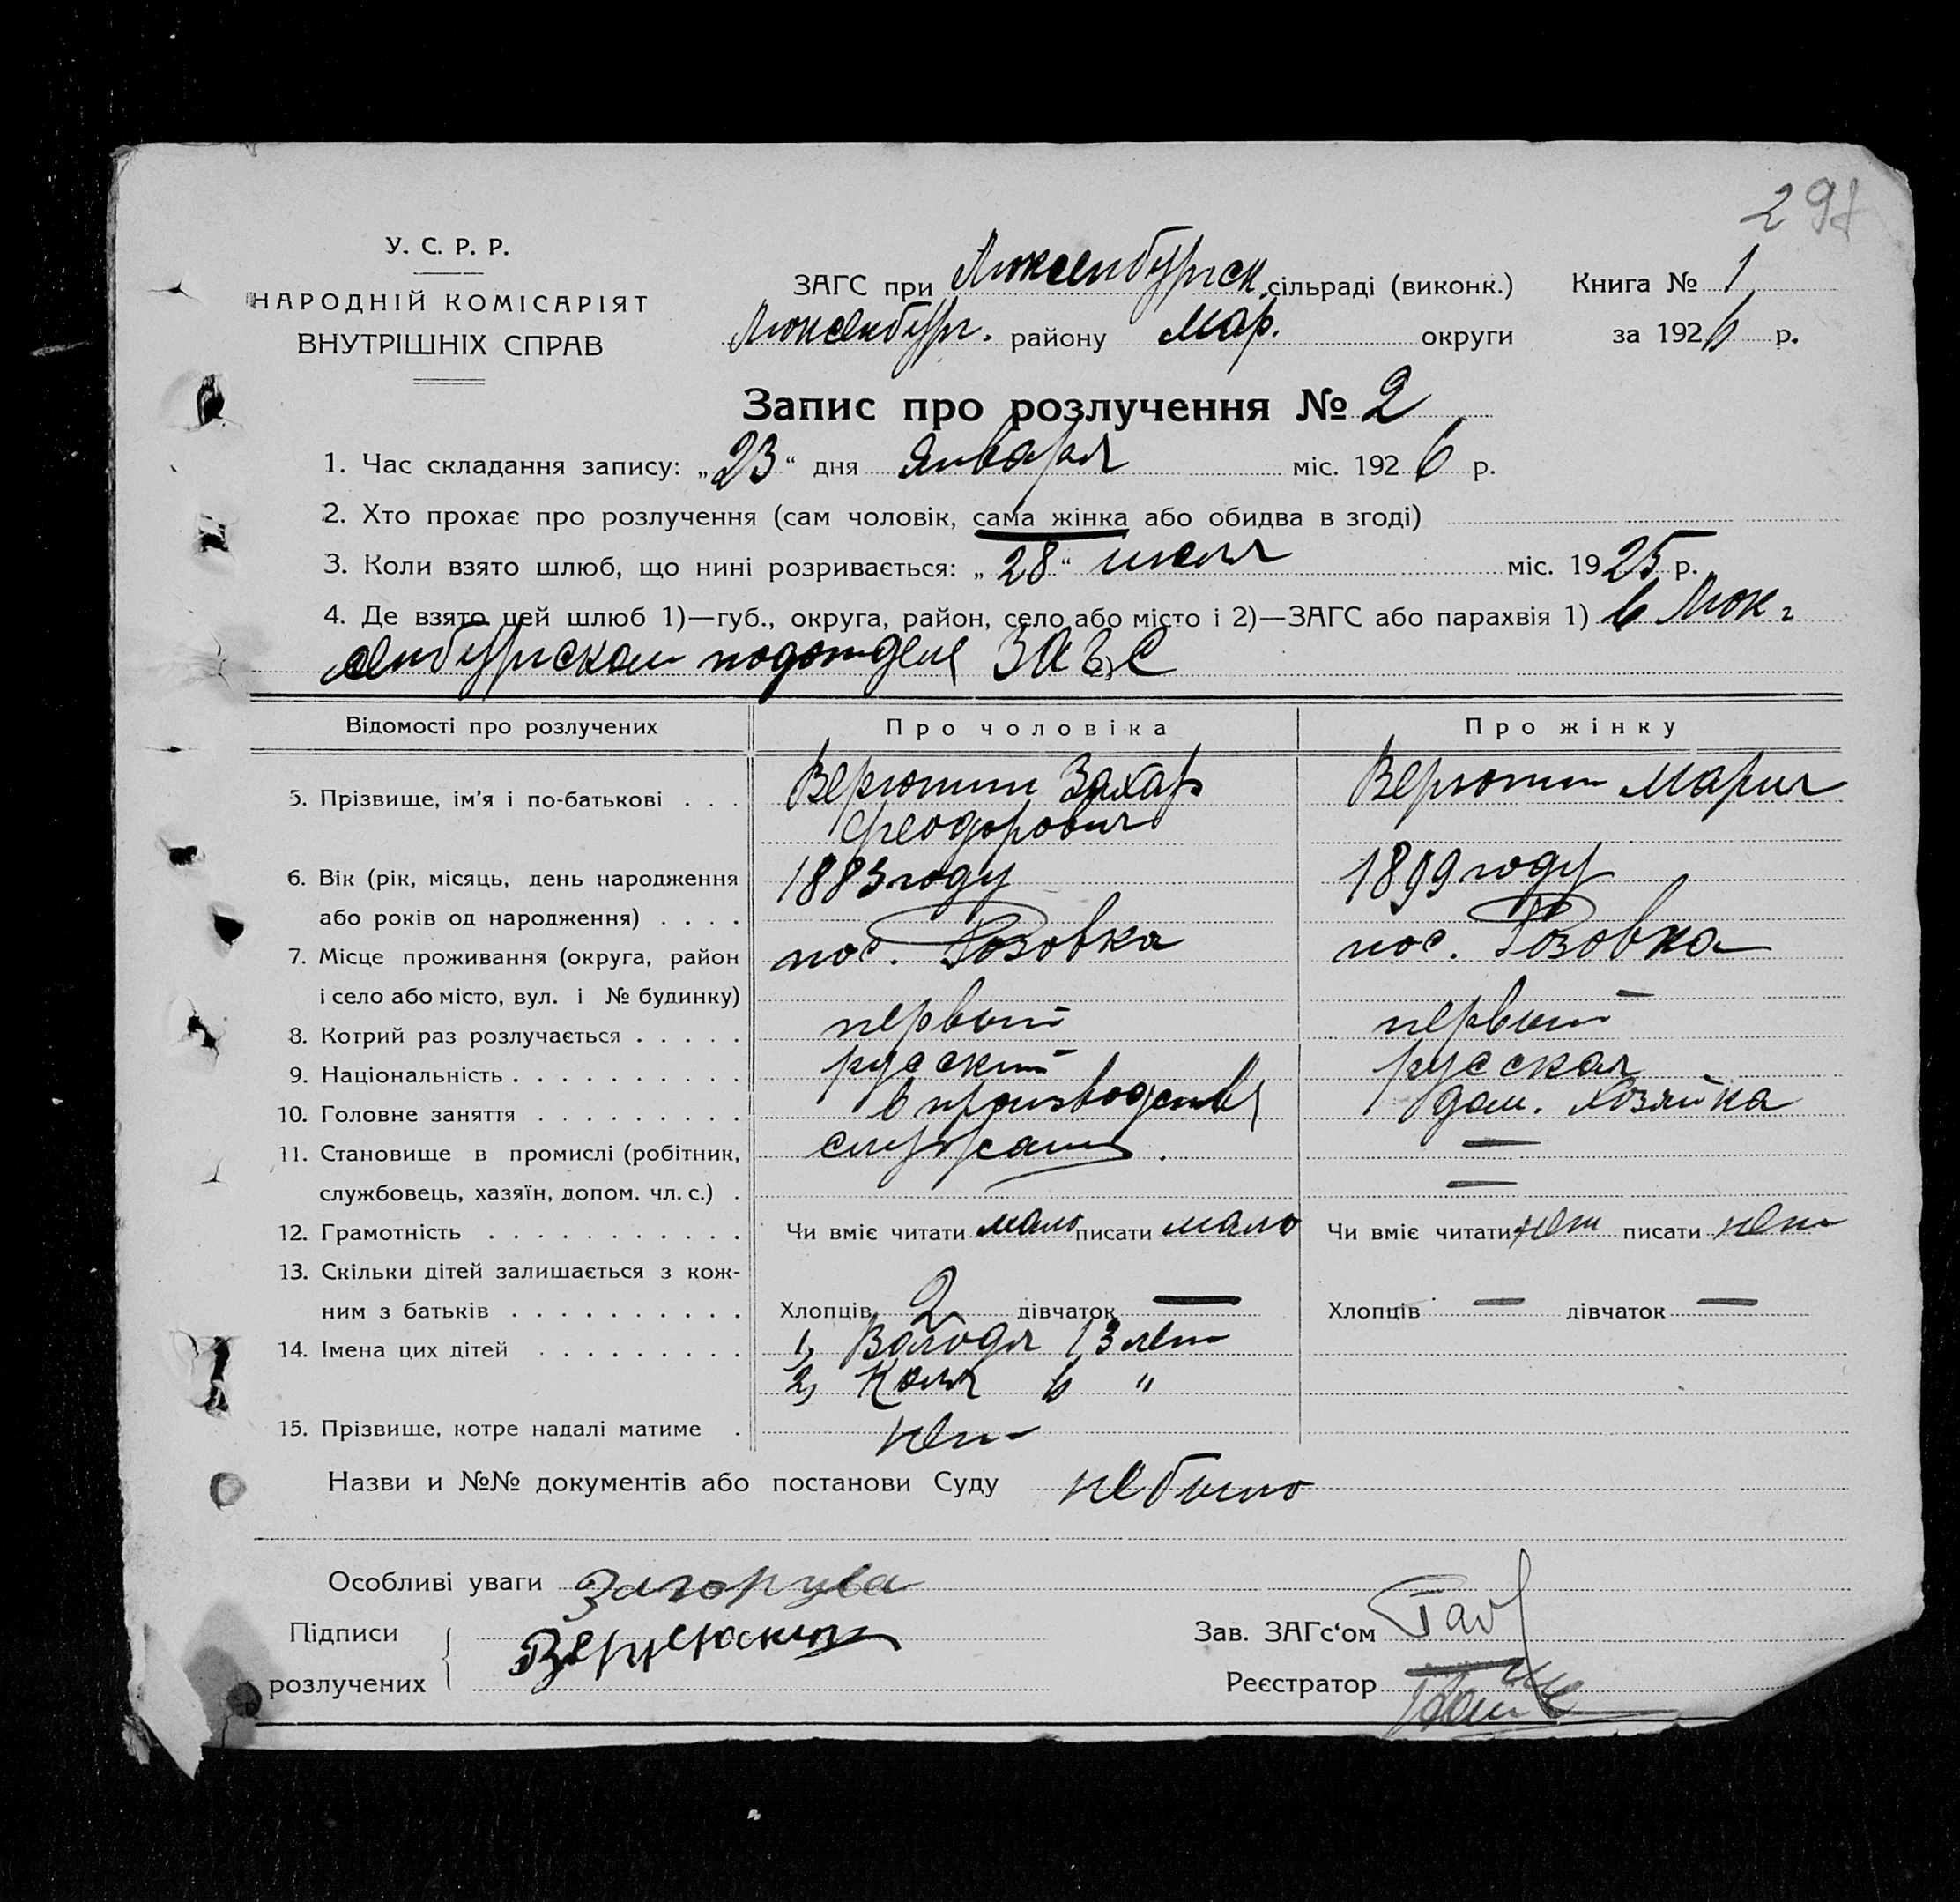 297
У. С. Р. Р.
НАРОДНІЙ КОМІСАРІЯТ
ВНУТРІШНІХ СПРАВ
ЗАГС при Люксенбургск. сільраді (виконк.) Книга № 1
Люксенбург. району Мар. округи за 1926 р.
Запис про розлучення № 2
1. Час складання запису: „23“ дня Января міс. 1926 р.
2. Хто прохає про розлучення (сам чоловік, сама жінка або обидва в згоді)
3. Коли взято шлюб, що нині розривається: „28“ июля міс. 1925 р.
4. Де взято цей шлюб 1)—губ., округа, район, село або місто і 2)—ЗАГС або парахвія 1) в Люк-
сенбургском подотделе ЗАГС
Відомості про розлучених Про чоловіка Про жінку
5. Прізвище, ім'я і по-батькові . . . Верютин Захар Верютин Мария
Феодорович
6. Вік (рік, місяць, день народження 1883 году 1899 году
або років од народження) . . . .
7. Місце проживання (округа, район пос. Розовка пос. Розовка
і село або місто, вул. і № будинку)
8. Котрий раз розлучається . . . . . первый первый
9. Національність . . . . . . . . . . русский русская
10. Головне заняття . . . . . . . . . в производстве дом. хозяйка
11. Становище в промислі (робітник, служащ. —
службовець, хазяїн, допом. чл. с.) . —
12. Грамотність . . . . . . . . . . . Чи вміє читати мало писати мало Чи вміє читати нет писати нет
13. Скільки дітей залишається з кож-
ним з батьків . . . . . . . . . . Хлопців 2 дівчаток — Хлопців — дівчаток —
14. Імена цих дітей . . . . . . . . . 1, Володя 13 лет
2, Коля 6 "
15. Прізвище, котре надалі матиме . нет
Назви и №№ документів або постанови Суду не было
Особливі уваги
Підписи Зав. ЗАГс‘ом
розлучених Реєстратор